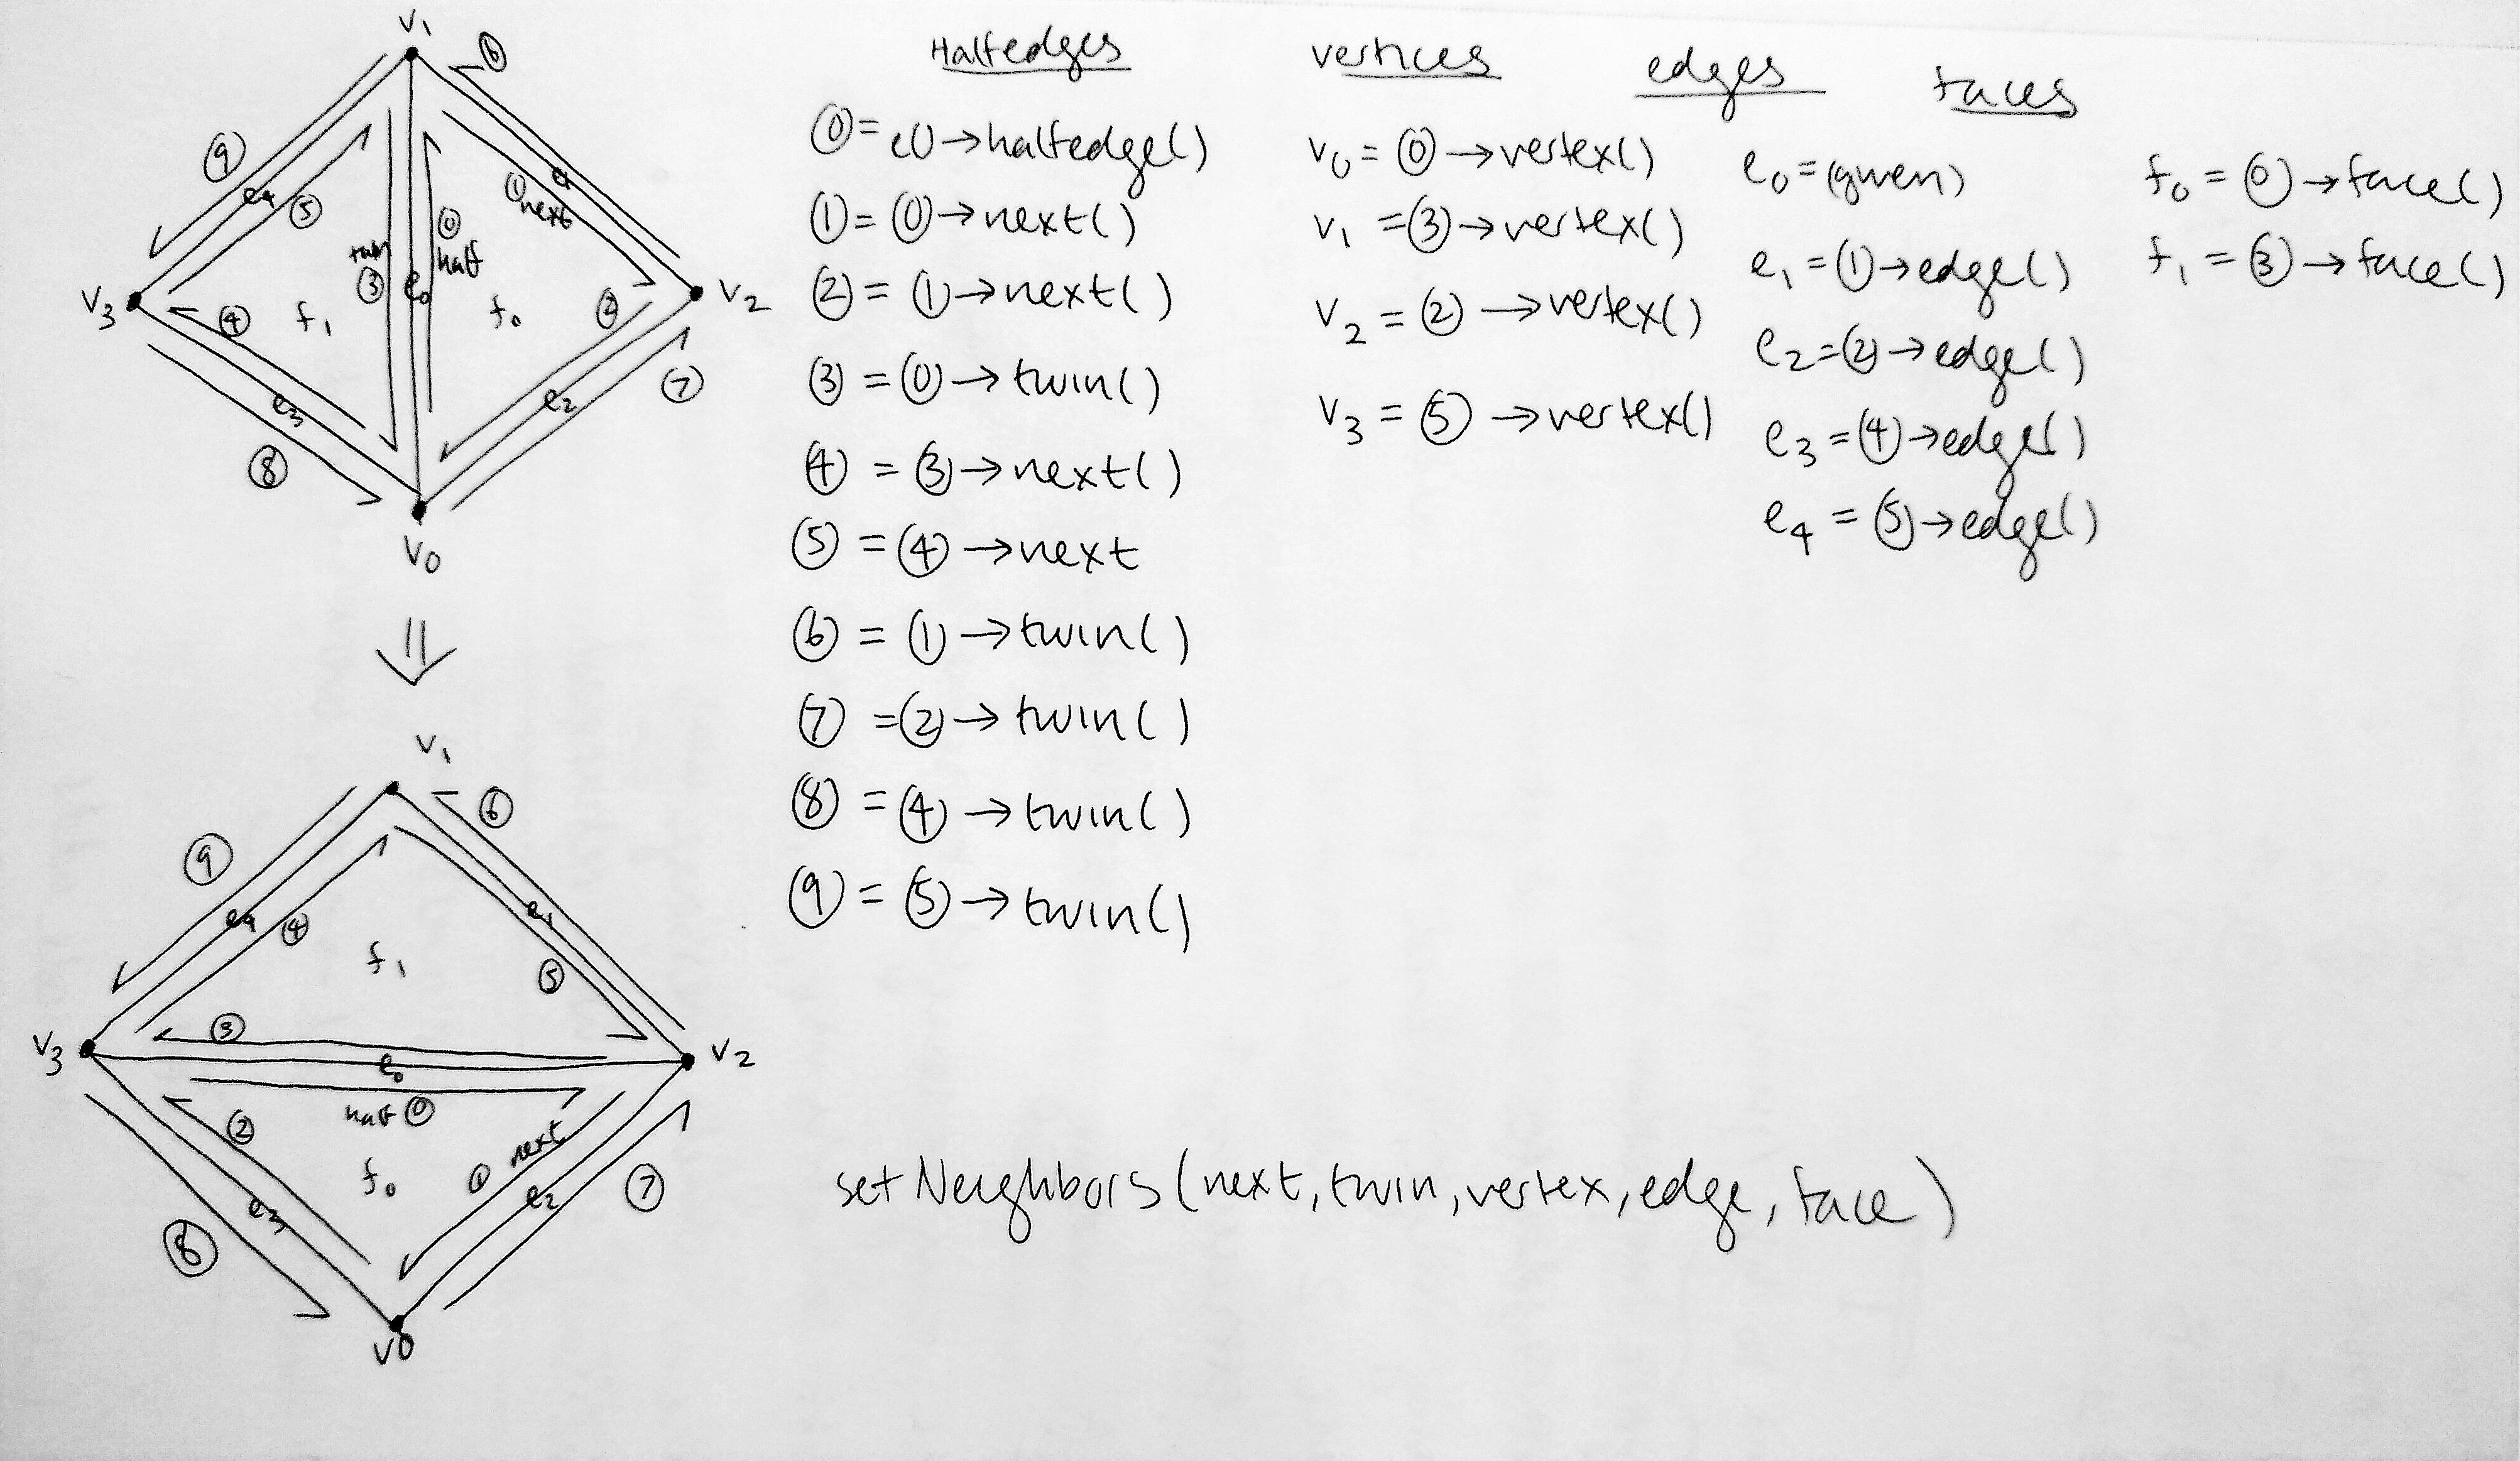 V₁
⑥
⑨
e₄
⑤
① next
e₁
twin
③
⓪
half
e₀
V₃
④
f₁
f₀
②
V₂
e₃
e₂
⑦
⑧
V₀
V₁
⑥
⑨
e₄
④
e₁
f₁
⑤
V₃
③
V₂
e₀
half ⓪
②
① next
f₀
e₃
e₂
⑦
⑧
V₀
Halfedges
⓪ = e0 → halfedge()
① = ⓪ → next()
② = ① → next()
③ = ⓪ → twin()
④ = ③ → next()
⑤ = ④ → next
⑥ = ① → twin()
⑦ = ② → twin()
⑧ = ④ → twin()
⑨ = ⑤ → twin()
vertices
V₀ = ⓪ → vertex()
V₁ = ③ → vertex()
V₂ = ② → vertex()
V₃ = ⑤ → vertex()
edges
e₀ = (given)
e₁ = ① → edge()
e₂ = ② → edge()
e₃ = ④ → edge()
e₄ = ⑤ → edge()
faces
f₀ = ⓪ → face()
f₁ = ③ → face()
setNeighbors(next, twin, vertex, edge, face)